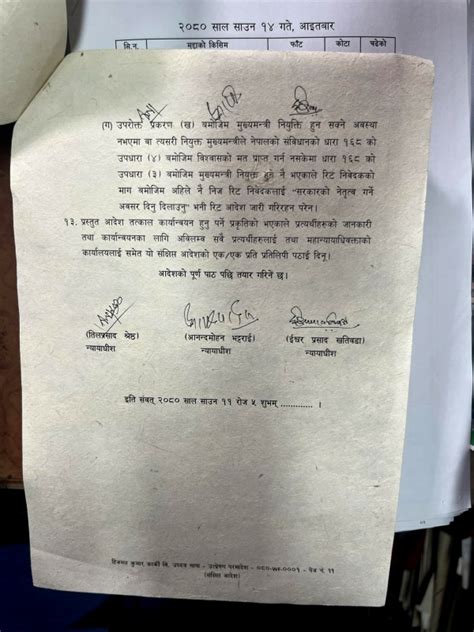 २०८० साल साउन १४ गते, आइतवार
सि.न. मुद्दाको किसिम फाँट कोटा चढेको
(ग) उपरोक्त प्रकरण (ख) बमोजिम मुख्यमन्त्री नियुक्ति हुन सक्ने अवस्था
नभएमा वा त्यसरी नियुक्त मुख्यमन्त्रीले नेपालको संविधानको धारा १६८ को
उपधारा (४) बमोजिम विश्वासको मत प्राप्त गर्न नसकेमा धारा १६८ को
उपधारा (३) बमोजिम मुख्यमन्त्री नियुक्त हुने नै भएकाले रिट निवेदकको
माग बमोजिम अहिले नै निज रिट निवेदकलाई "सरकारको नेतृत्व गर्ने
अवसर दिनु दिलाउनु" भनी रिट आदेश जारी गरिरहन परेन।
१३. प्रस्तुत आदेश तत्काल कार्यान्वयन हुनु पर्ने प्रकृतिको भएकाले प्रत्यर्थीहरुको जानकारी
तथा कार्यान्वयनका लागि अविलम्ब सबै प्रत्यर्थीहरुलाई तथा महान्यायाधिवक्ताको
कार्यालयलाई समेत यो संक्षिप्त आदेशको एक/एक प्रति प्रतिलिपी पठाई दिनू।
आदेशको पूर्ण पाठ पछि तयार गरिने छ।
(तिलप्रसाद श्रेष्ठ) (आनन्दमोहन भट्टराई) (ईश्वर प्रसाद खतिवडा)
न्यायाधीश न्यायाधीश न्यायाधीश
इति संवत् २०८० साल साउन ११ रोज ५ शुभम् ............. ।
- उत्प्रेषण परमादेश - ०८०-WF-०००१ - पेज नं. ११
(संक्षिप्त आदेश)